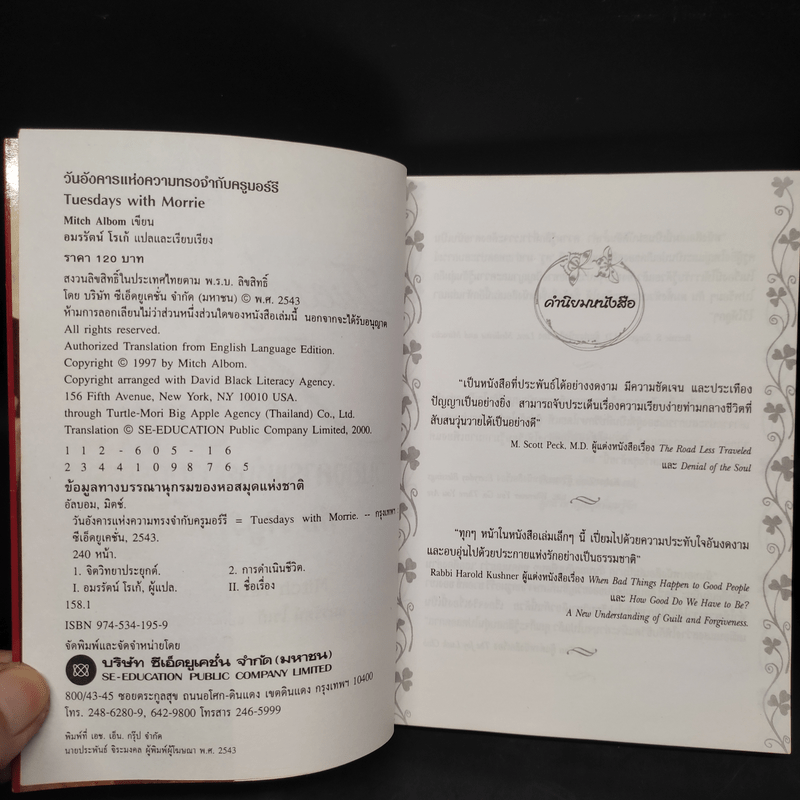 วันอังคารแห่งความทรงจำกับครูมอร์รี
Tuesdays with Morrie
Mitch Albom เขียน
อมรรัตน์ โรเก้ แปลและเรียบเรียง
ราคา 120 บาท
สงวนลิขสิทธิ์ในประเทศไทยตาม พ.ร.บ. ลิขสิทธิ์
โดย บริษัท ซีเอ็ดยูเคชั่น จำกัด (มหาชน) © พ.ศ. 2543
ห้ามการลอกเลียนไม่ว่าส่วนหนึ่งส่วนใดของหนังสือเล่มนี้ นอกจากจะได้รับอนุญาต
All rights reserved.
Authorized Translation from English Language Edition.
Copyright © 1997 by Mitch Albom.
Copyright arranged with David Black Literacy Agency.
156 Fifth Avenue, New York, NY 10010 USA.
through Turtle-Mori Big Apple Agency (Thailand) Co., Ltd.
Translation © SE-EDUCATION Public Company Limited, 2000.
1 1 2 - 6 0 5 - 1 6
2 3 4 4 1 0 9 8 7 6 5
ข้อมูลทางบรรณานุกรมของหอสมุดแห่งชาติ
อัลบอม, มิตช์.
วันอังคารแห่งความทรงจำกับครูมอร์รี = Tuesdays with Morrie. -- กรุงเทพฯ
ซีเอ็ดยูเคชั่น, 2543.
240 หน้า.
1. จิตวิทยาประยุกต์. 2. การดำเนินชีวิต.
I. อมรรัตน์ โรเก้, ผู้แปล. II. ชื่อเรื่อง
158.1
ISBN 974-534-195-9
จัดพิมพ์และจัดจำหน่ายโดย
บริษัท ซีเอ็ดยูเคชั่น จำกัด (มหาชน)
SE-EDUCATION PUBLIC COMPANY LIMITED
800/43-45 ซอยตระกูลสุข ถนนอโศก-ดินแดง เขตดินแดง กรุงเทพฯ 10400
โทร. 248-6280-9, 642-9800 โทรสาร 246-5999
พิมพ์ที่ เอช. เอ็น. กรุ๊ป จำกัด
นายประพันธ์ จิระมงคล ผู้พิมพ์ผู้โฆษณา พ.ศ. 2543
คำนิยมหนังสือ
"เป็นหนังสือที่ประพันธ์ได้อย่างงดงาม มีความชัดเจน และประเทือง
ปัญญาเป็นอย่างยิ่ง สามารถจับประเด็นเรื่องความเรียบง่ายท่ามกลางชีวิตที่
สับสนวุ่นวายได้เป็นอย่างดี"
M. Scott Peck, M.D. ผู้แต่งหนังสือเรื่อง The Road Less Traveled
และ Denial of the Soul
"ทุกๆ หน้าในหนังสือเล่มเล็กๆ นี้ เปี่ยมไปด้วยความประทับใจอันงดงาม
และอบอุ่นไปด้วยประกายแห่งรักอย่างเป็นธรรมชาติ"
Rabbi Harold Kushner ผู้แต่งหนังสือเรื่อง When Bad Things Happen to Good People
และ How Good Do We Have to Be?
A New Understanding of Guilt and Forgiveness.